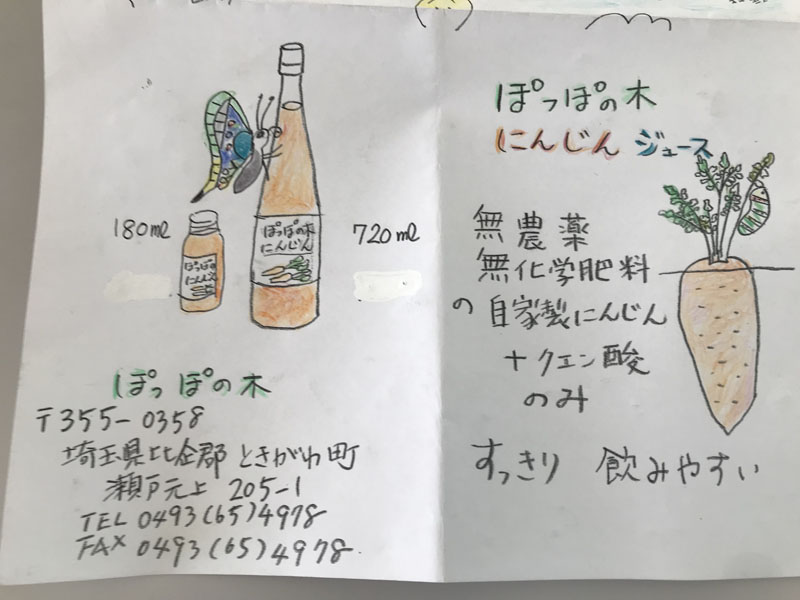 180ml
720ml
ぽっぽの木
にんじん
ぽっぽの
にんじん
ぽっぽの木
〒355-0358
埼玉県比企郡ときがわ町
瀬戸元上 205-1
TEL 0493(65)4978
FAX 0493(65)4978
ぽっぽの木
にんじん ジュース
無農薬
無化学肥料
の自家製にんじん
+クエン酸
のみ
すっきり 飲みやすい